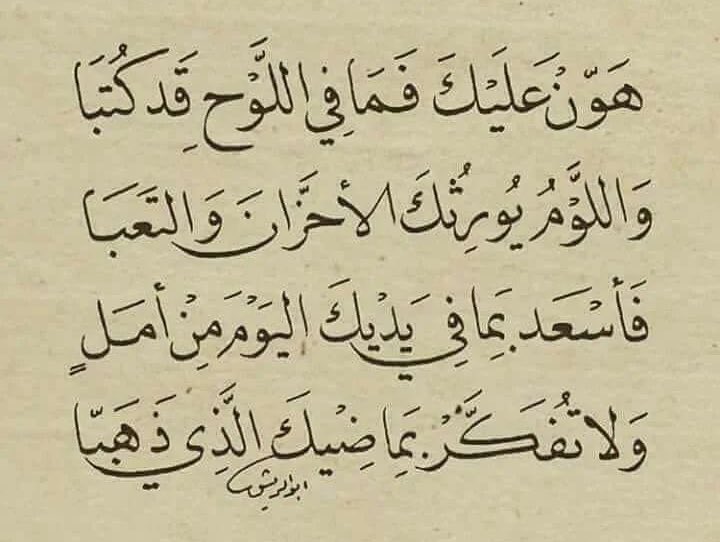 هَوِّنْ عَلَيْكَ فَمَا فِي اللَّوْحِ قَد كُتِبَا
وَاللَّوْمُ يُورِثُكَ الأحزَانَ وَالتَعَبَا
فَأسْعَد بِمَا فِي يَدْيكَ اليَوْمَ مِنْ أمَلٍ
وَلا تُفَكِّرْ بِمَاضِيْكَ الَّذِي ذَهَبَا
ابوالريش